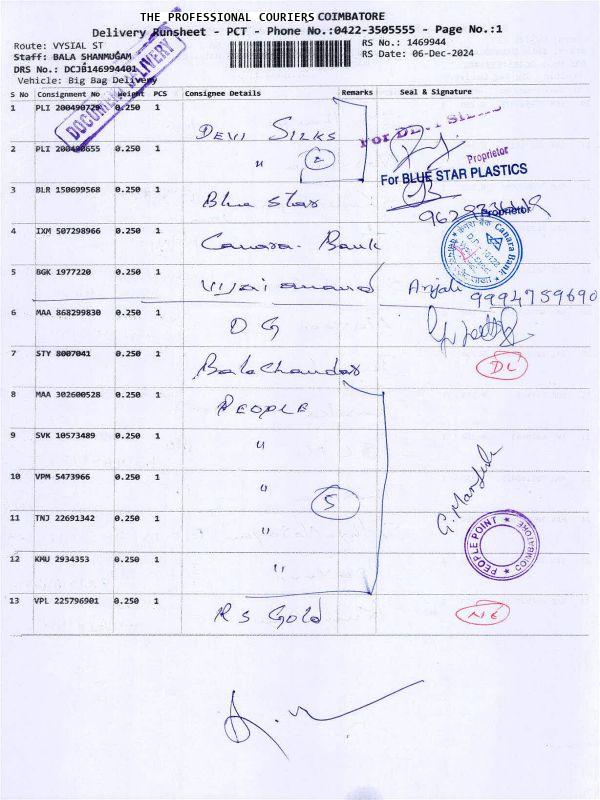 THE PROFESSIONAL COURIERS COIMBATORE
Delivery Runsheet - PCT - Phone No.:0422-3505555 - Page No.:1
Route: VYSIAL ST
RS No.: 1469944
Staff: BALA SHANMUGAM
RS Date: 06-Dec-2024
DRS No.: DCJB146994401
Vehicle: Big Bag Delivery
DOCUMENT DELIVERY
S No Consignment No Weight PCS Consignee Details Remarks Seal & Signature
1 PLI 200490729 0.250 1 DEVI SILKS
For DEVI SILKS
2 PLI 200490655 0.250 1 " 2
Proprietor
For BLUE STAR PLASTICS
3 BLR 150699568 0.250 1 Blue Star
Proprietor
4 IXM 507298966 0.250 1 Canara Bank
Canara Bank
5 BGK 1977220 0.250 1 Vijai anand Anjali 9994759690
6 MAA 868299830 0.250 1 D G
7 STY 8007041 0.250 1 Balachandar DL
8 MAA 302600528 0.250 1 PEOPLE
9 SVK 10573489 0.250 1 "
10 VPM 5473966 0.250 1 " 5
11 TNJ 22691342 0.250 1 "
PEOPLE POINT ★ COIMBATORE ★
12 KMU 2934353 0.250 1 "
13 VPL 225796901 0.250 1 RS Gold